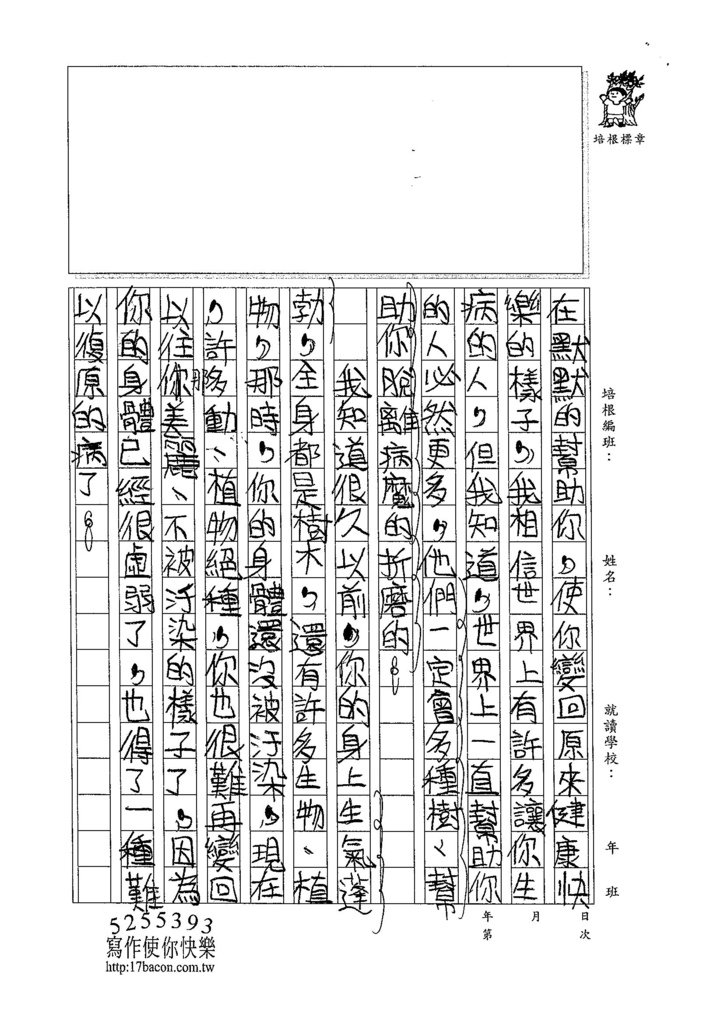 培根標章
培根編班： 姓名： 就讀學校： 年 班
年 月 日
第 次
在默默的幫助你，使你變回原來健康快
樂的樣子，我相信世界上有許多讓你生
病的人，但我知道，世界上一直幫助你
的人必然更多，他們一定會多種樹、幫
助你脫離病魔的折磨的。
我知道很久以前，你的身上生氣蓬
勃，全身都是樹木，還有許多生物、植
物，那時，你的身體還沒被汙染，現在
，許多動、植物絕種，你也很難再變回
以往你那美麗、不被汙染的樣子了，因為
你的身體已經很虛弱了，也得了一種難
以復原的病了。
5255393
寫作使你快樂
http:17bacon.com.tw